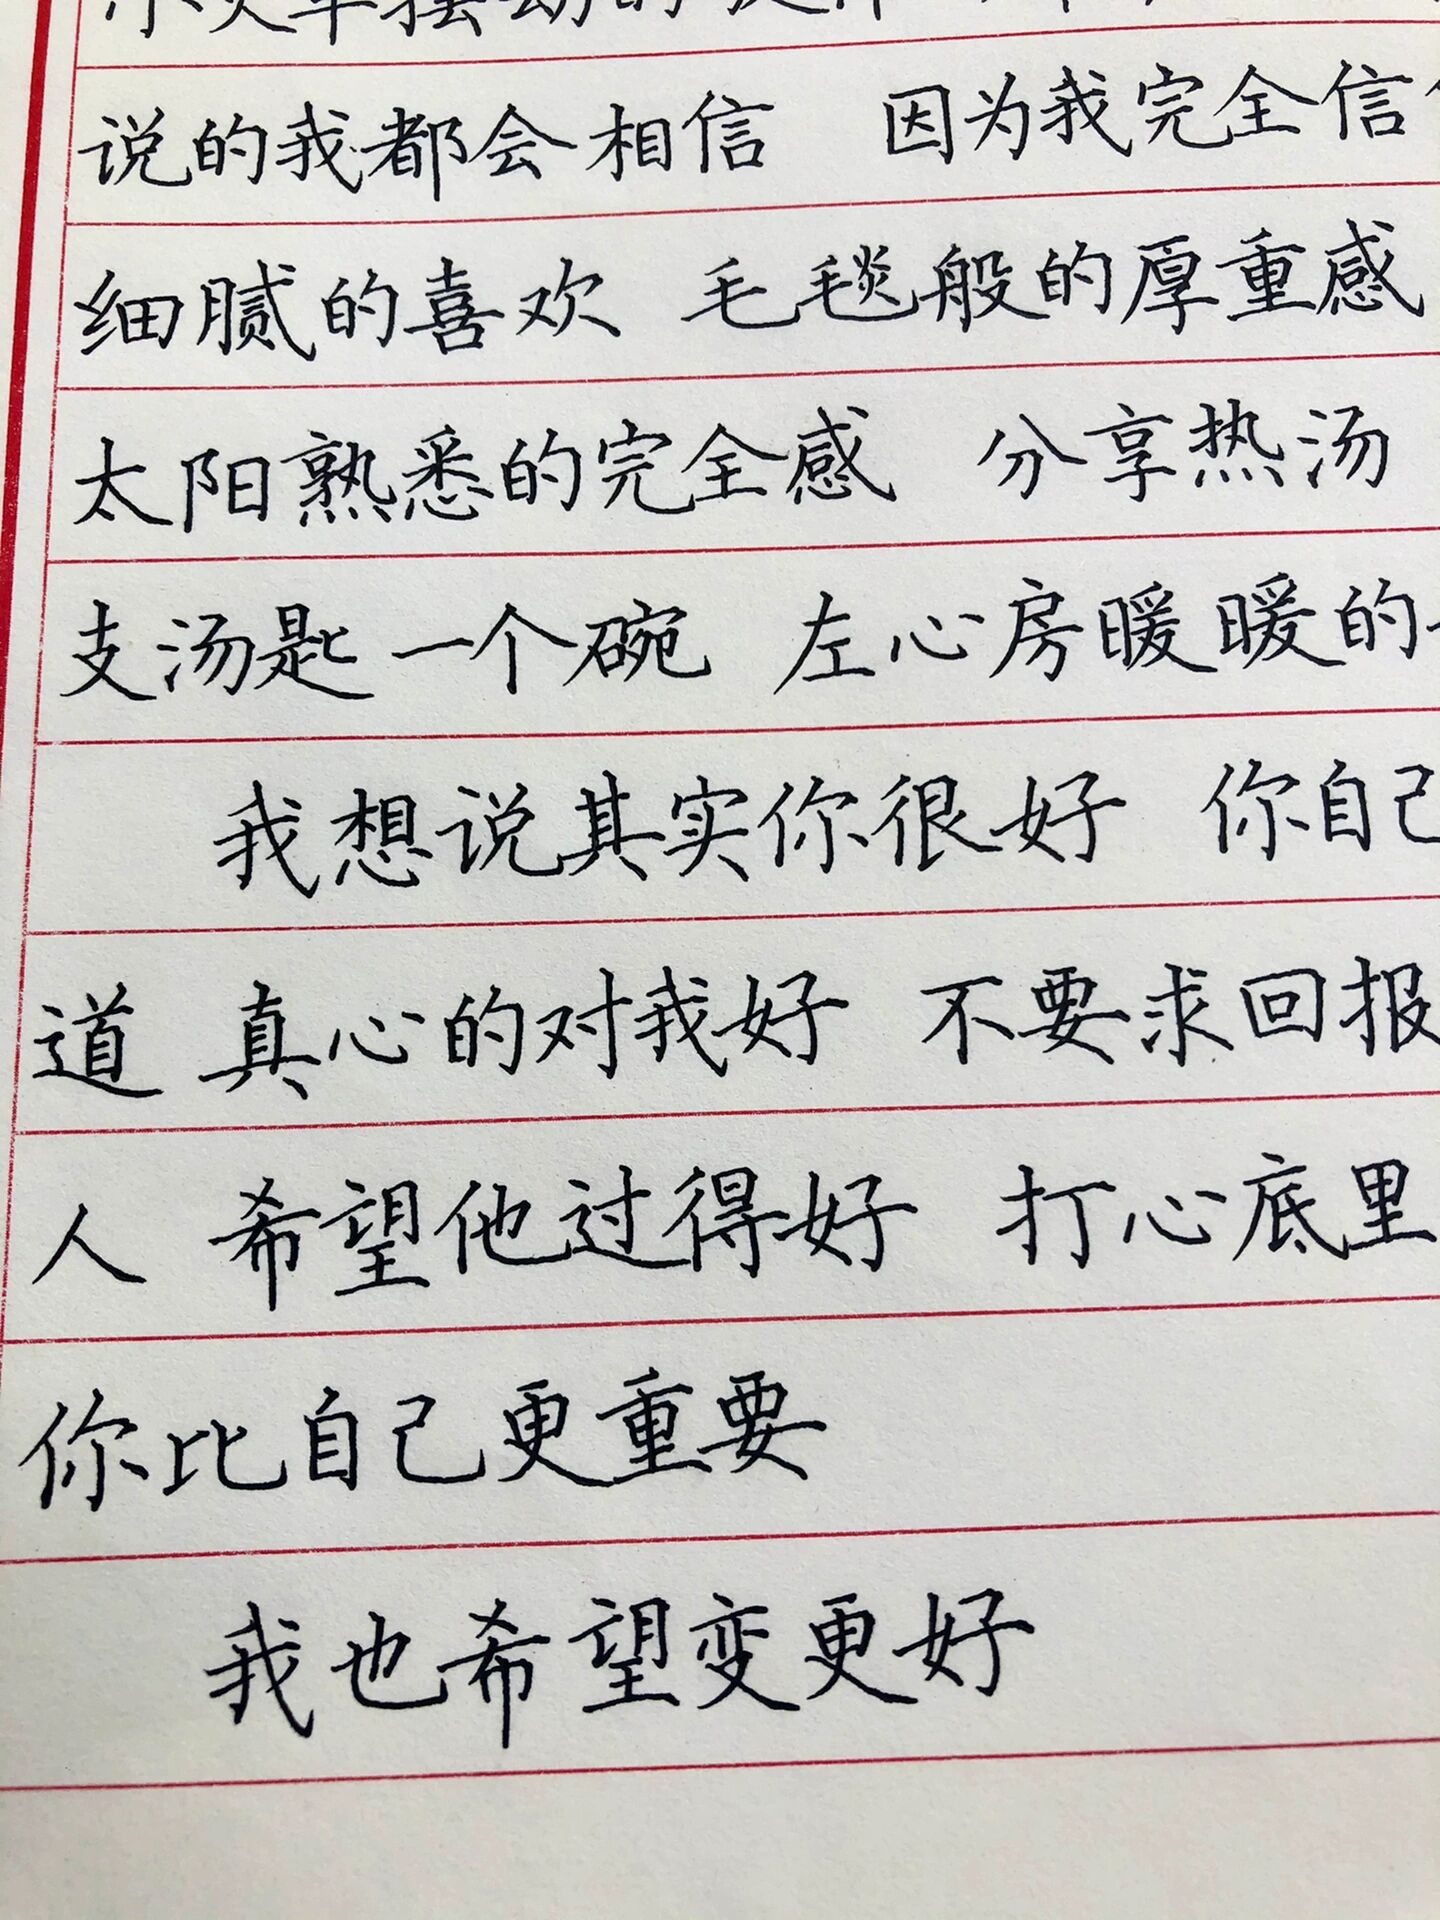 火车摆动的
说的我都会相信 因为我完全信
细腻的喜欢 毛毯般的厚重感
太阳熟悉的完全感 分享热汤
支汤匙一个碗 左心房暖暖的
我想说其实你很好 你自己
道 真心的对我好 不要求回报
人 希望他过得好 打心底里
你比自己更重要
我也希望变更好